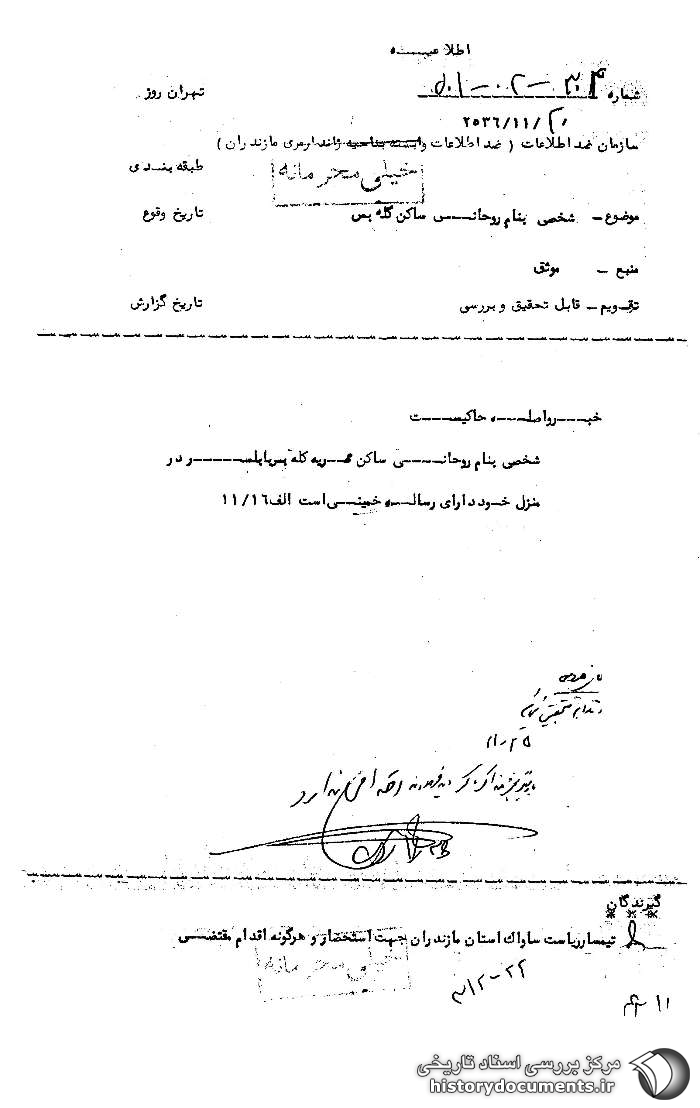 اطلاعیـــه
شماره ۳۴-۰۲-۵۰۱
تهران روز
۲۵۳۶/۱۱/۲۰
سازمان ضد اطلاعات ( ضد اطلاعات وابسته بناحیه ژاندارمری مازندران )
طبقه بندی
خیلی محرمانه
موضوع - شخصی بنام روحانـــی ساکن کله بس
تاریخ وقوع
منبع - موثق
تقویم - قابل تحقیق و بررسی
تاریخ گزارش
خبـــر واصلـــه حاکیســـت
شخصی بنام روحانـــی ساکن قـریه کله بس بابلســـر در
منزل خـود دارای رسالـــه خمینـــی است الف ۱۱/۱۶
گیرندگان
تیمسار ریاست ساواک استان مازندران جهت استحضار و هرگونه اقدام مقتضـــی
خیلی محرمانه
۳۱۲-۲۲
۱۱
مرکز بررسی اسناد تاریخی
historydocuments.ir